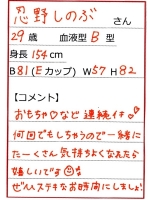 忍野しのぶ さん
29歳 血液型 B 型
身長 154 cm
B81(Eカップ) W57 H82
【コメント】
おもちゃ♡など連続イキ♡
何回でもしちゃうので一緒に
たーくさん気持ちよくなれたら
嬉しいです
ぜひステキなお時間にしましょ!